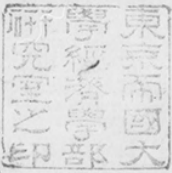 東京帝國大
學經濟學部
研究室之印